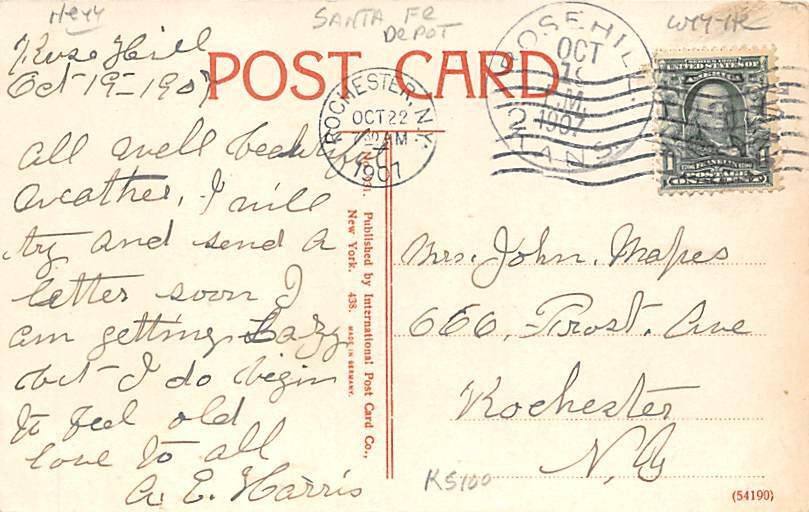 SANTA FE
DEPOT
Rose Hill
Oct-19-1907
POST CARD
ROCHESTER, N.Y.
OCT 22
7 30 AM
1907
ROSEHILL
OCT
19
P.M.
1907
KANS.
2
All well beautiful
weather, I will
try and send a
letter soon I
am getting Lazy
but I do begin
to feel old
love to all
A. E. Harris
Published by International Post Card Co.,
New York. 438. MADE IN GERMANY.
Mrs. John. Mapes
666, Frost. Ave
Rochester
N.Y
KS100
(54190)